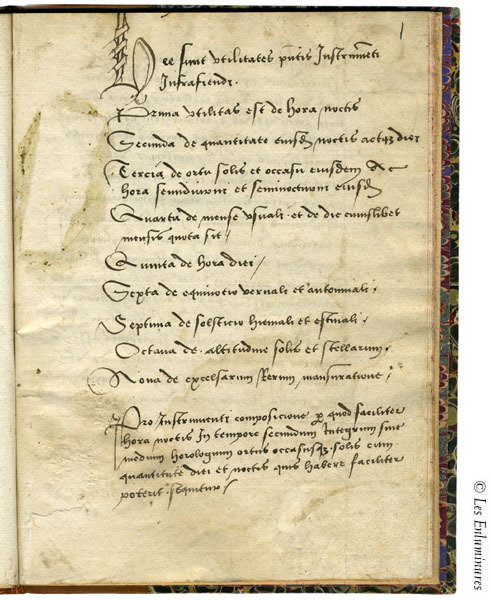 1
Hec sunt utilitates pntis Instrumeti
Infrafiendi.
Prima utilitas est de hora noctis
Secunda de quantitate eiusdem noctis atque diei
Tercia de ortu solis et occasu eiusdem Ac
hora semidiurni et seminocturni eiusdem
Quarta de mense usuali et de die cuiuslibet
mensis quota sit /
Quinta de hora diei /
Sexta de equinoctio vernali et autumnali .
Septima de solsticio hiemali et estivali .
Octava de altitudine solis et stellarum .
Nona de excelsarum Rerum mansuratione .
Pro Instrumenti composicione per quod faciliter
hora noctis In tempore secundum Integrum sive
medium horologium ortus occasusque solis cum
quantitate diei et noctis quis habere faciliter
poterit sequitur /
© Les Enluminures